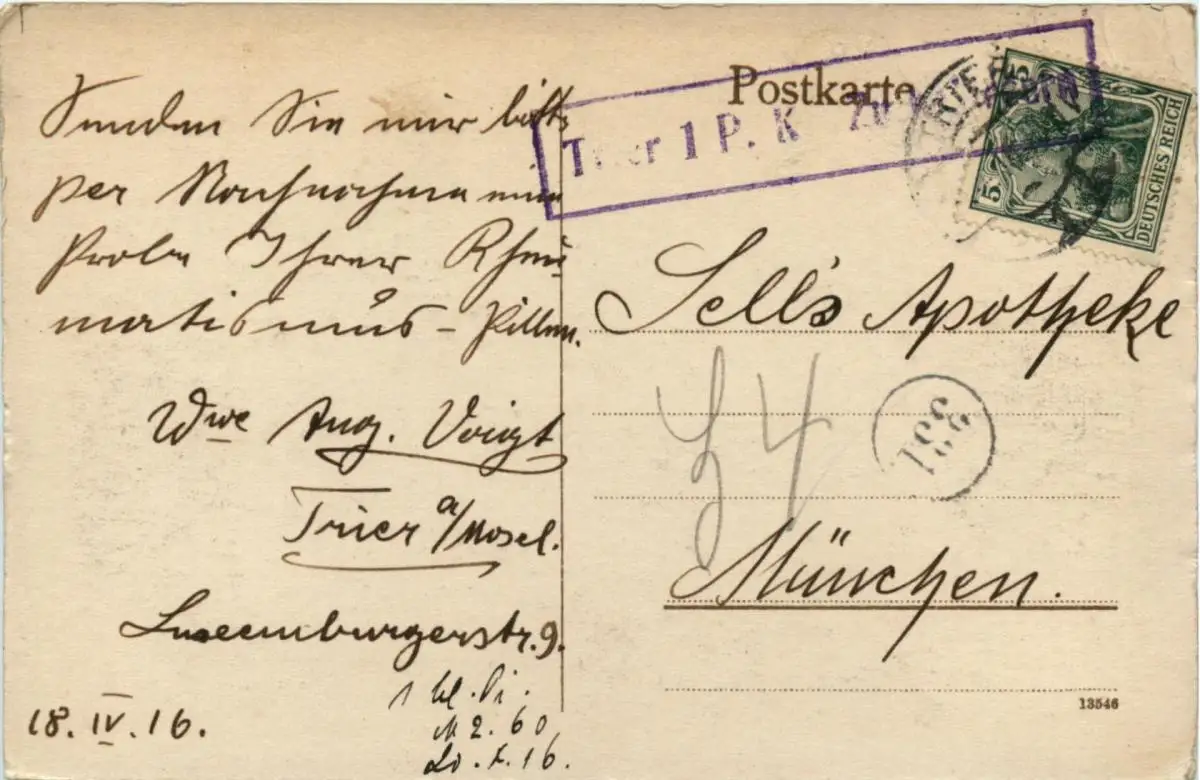 Senden Sie mir bitte
per Nachnahme eine
Probe Ihrer Rheu-
matismus-Pillen.
Wwe Aug. Voigt
Trier a/Mosel.
Luxemburgerstr. 9.
18. IV. 16.
1 kl.
M 2.60
16.
Postkarte
Trier 1 P. K
TRIER
5
DEUTSCHES REICH
Sell's Apotheke
331
München.
13546